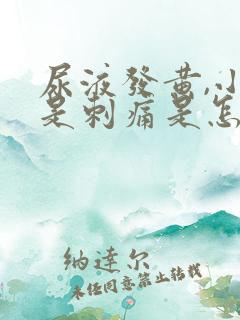 尿液發黃,小
是刺痛是怎
納達尔
未经同意禁止转载